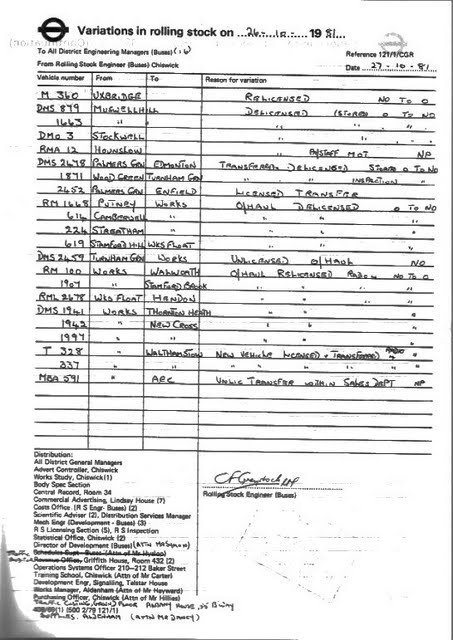 Variations in rolling stock on 26-10- 1981.
To All District Engineering Managers (Buses) (16)
Reference 121/1/CGR
From Rolling Stock Engineer (Buses) Chiswick
Date 27-10-81
Vehicle number From To Reason for variation
M 360 UXBRIDGE RELICENSED NO TO O
DMS 879 MUSWELL HILL DELICENSED (STORED O TO NO
1663 " " " " "
DMO 3 STOCKWELL " " " "
RMA 12 HOUNSLOW P/STAFF MOT NP
DMS 2678 PALMERS GRN EDMONTON TRANSFERRED DELICENSED STORED O TO NO
1871 WOOD GREEN TURNHAM GRN " " INSPECTION "
2452 PALMERS GRN ENFIELD LICENSED TRANSFER
RM 1668 PUTNEY WORKS O/HAUL DELICENSED O TO NO
614 CAMBERWELL " " " "
224 STREATHAM " " " "
619 STAMFORD HILL WKS FLOAT " "
DMS 2459 TURNHAM GRN WORKS UNLICENSED O/HAUL NO
RM 100 WORKS WALWORTH O/HAUL RELICENSED NO TO O
1907 " STAMFORD BROOK " " "
RML 2678 WKS FLOAT HENDON " " "
DMS 1941 WORKS THORNTON HEATH " " "
1942 " NEW CROSS " " "
1997 " " " " "
T 328 " WALTHAMSTOW NEW VEHICLE LICENSED & TRANSFERRED RADIO "
337 " " " " " "
MBA 591 " AEC UNLIC TRANSFER WITHIN SALES DEPT NP
Distribution:
All District General Managers
Advert Controller, Chiswick
Works Study, Chiswick (1)
Body Spec Section
Central Record, Room 34
Commercial Advertising, Lindsay House (7)
Costs Office. (R S Engr- Buses) (2)
Scientific Adviser (2), Distribution Services Manager
Mech Engr (Development - Buses) (3)
R S Licensing Section (5), R S Inspection
Statistical Office, Chiswick (2)
Director of Development (Buses) (ATTN
Schedules Supt - Buses (Attn of Mr Hyslop)
Revenue Office, Griffith House, Room 432 (2)
Operations Systems Officer 210–212 Baker Street
Training School, Chiswick (Attn of Mr Carter)
Development Engr, Signalling, Telstar House
Works Manager, Aldenham (Attn of Mr Hayward)
Purchasing Officer, Chiswick (Attn of Mr Hillies)
TRAFFIC COSTING, GROUND FLOOR ALBANY HOUSE, 55 B'WAY
(1) (500 2/79 121/1)
SUPPLIES, ALDENHAM (ATTN MR
Rolling Stock Engineer (Buses)